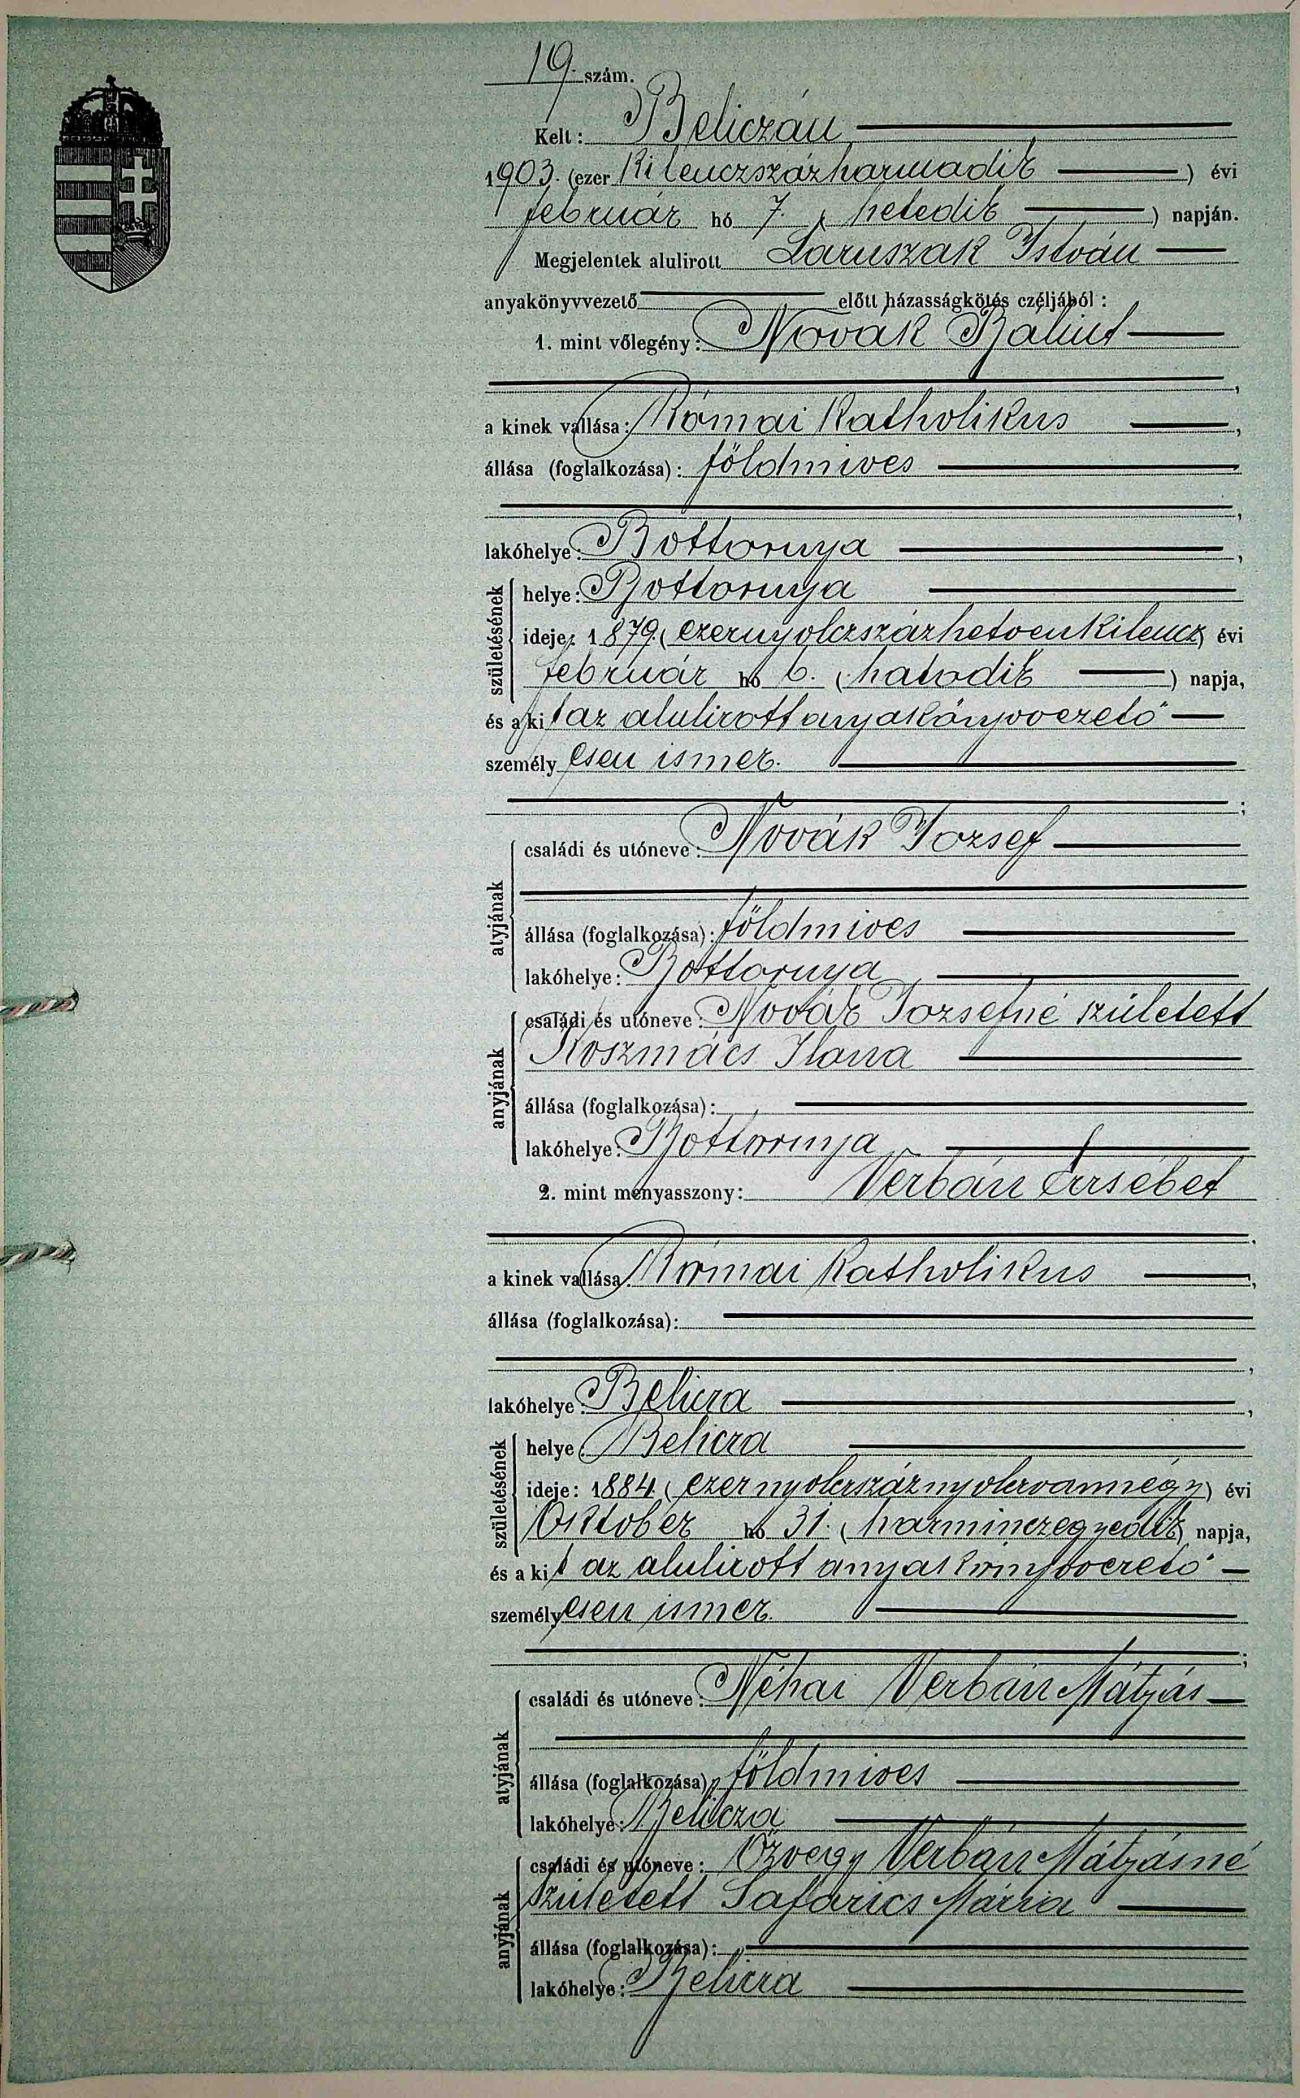 19. szám.
Kelt: Beliczán
1903. (ezer kilenczszázharmadik) évi
február hó 7. (hetedik) napján.
Megjelentek alulirott Laruszak István
anyakönyvvezető előtt házasságkötés czéljából:
1. mint vőlegény: Novák Bálint
a kinek vallása: Római Katholikus,
állása (foglalkozása): földmives
lakóhelye: Bottornya,
születésének helye: Bottornya
ideje: 1879. (ezernyolczszázhetvenkilencz) évi
február hó 6. (hatodik) napja,
és a kit az alulirott anyakönyvvezető
személyesen ismer.
atyjának családi és utóneve: Novák Jozsef
állása (foglalkozása): földmives
lakóhelye: Bottornya
anyjának családi és utóneve: Novák Jozsefné született
Koszmács Ilona
állása (foglalkozása):
lakóhelye: Bottornya
2. mint menyasszony: Verbán Erzsébet
a kinek vallása: Római Katholikus,
állása (foglalkozása):
lakóhelye: Belicza,
születésének helye Belicza
ideje: 1884. (ezernyolczszáznyolczvannégy) évi
Október hó 31. (harminczegyedik) napja,
és a kit az alulirott anyakönyvvezető
személyesen ismer.
atyjának családi és utóneve: Néhai Verbán Mátyás
állása (foglalkozása) földmives
lakóhelye: Belicza
anyjának családi és utóneve: Özvegy Verbán Mátyásné
született Safarics Mária
állása (foglalkozása):
lakóhelye: Belicza